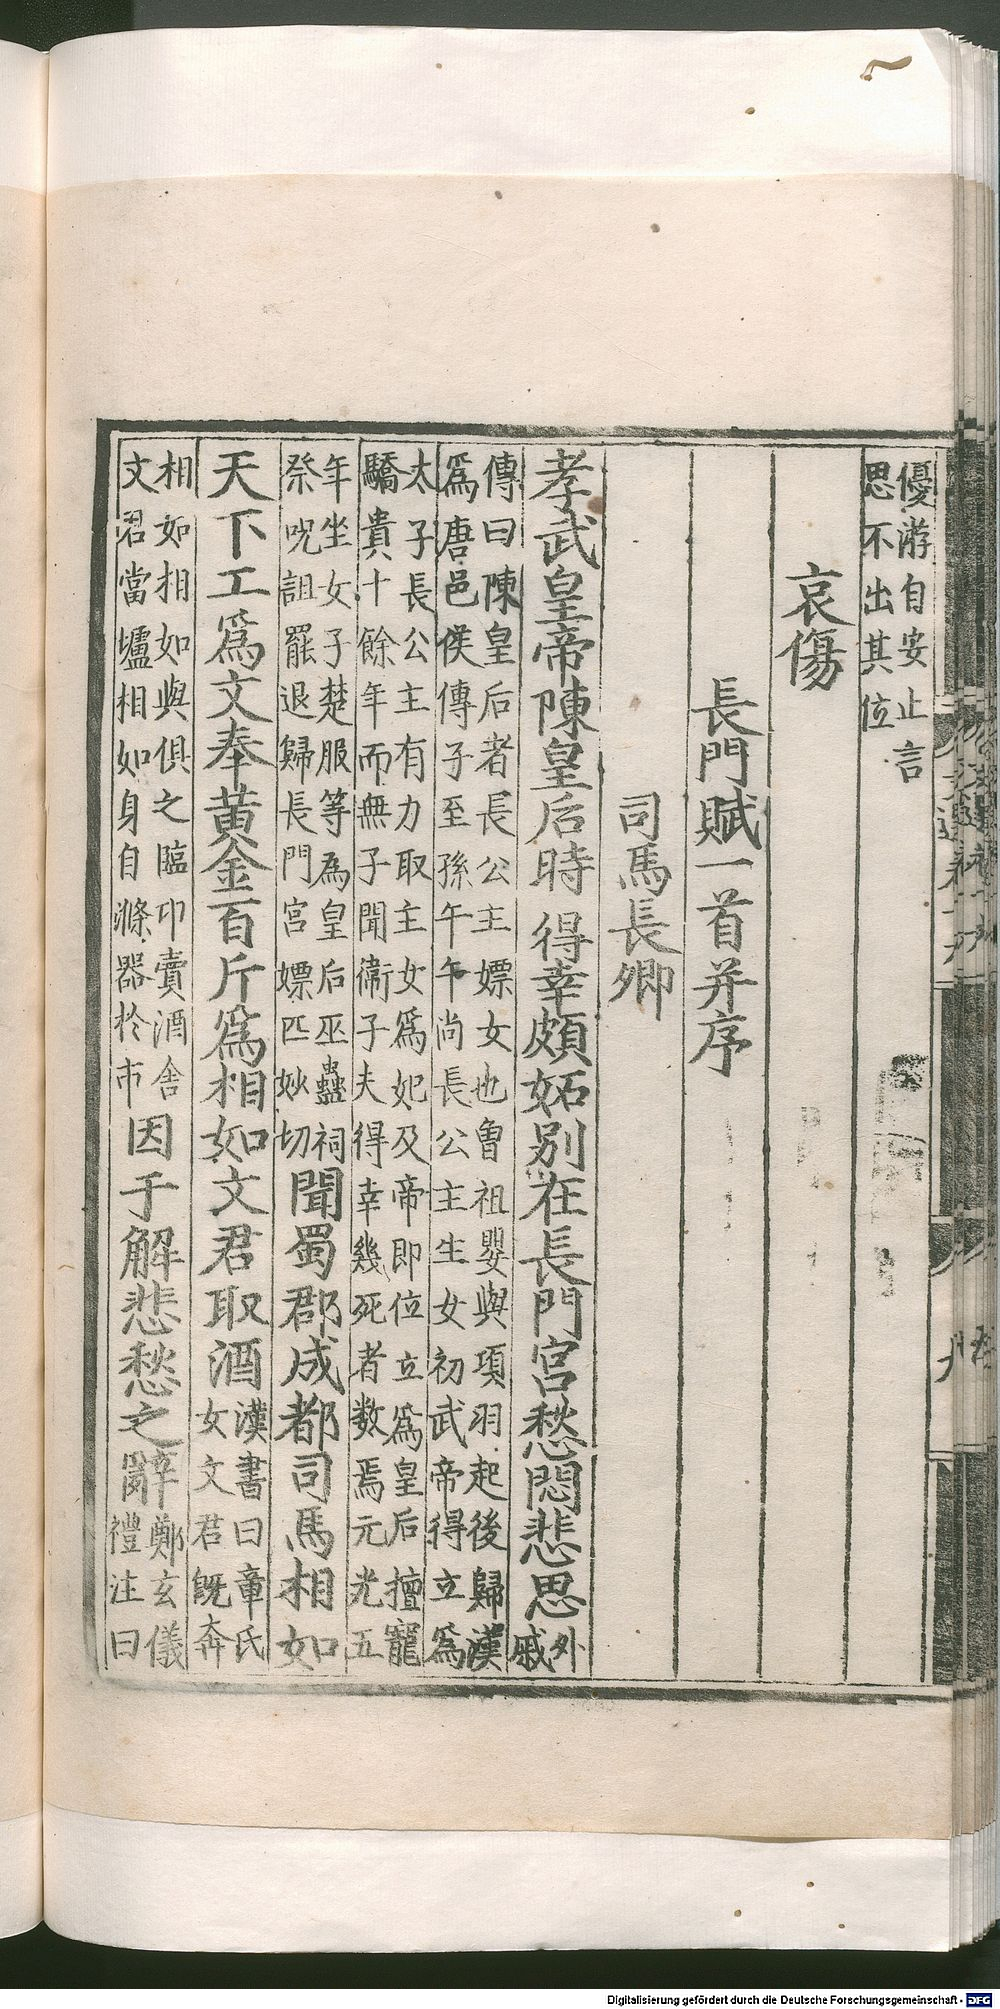 優游自安止言
思不出其位
哀傷
長門賦一首并序
司馬長卿
孝武皇帝陳皇后時得幸頗妬別在長門宮愁悶悲思外
戚
傳曰陳皇后者長公主嫖女也曾祖嬰與項羽起後歸漢
爲唐邑侯傳子至孫午午尚長公主生女初武帝得立爲
太子長公主有力取主女爲妃及帝即位立爲皇后擅寵
驕貴十餘年而無子聞衛子夫得幸幾死者數焉元光五
年坐女子楚服等為皇后巫蠱祠
祭呪詛罷退歸長門宮嫖匹妙切
聞蜀郡成都司馬相如
天下工爲文奉黃金百斤爲相如文君取酒
漢書曰章氏
女文君既奔
相如相如與俱之臨卭賣酒舍
文君當壚相如身自滌器於市
因于解悲愁之辭
鄭玄儀
禮注曰
Digitalisierung gefördert durch die Deutsche Forschungsgemeinschaft - DFG